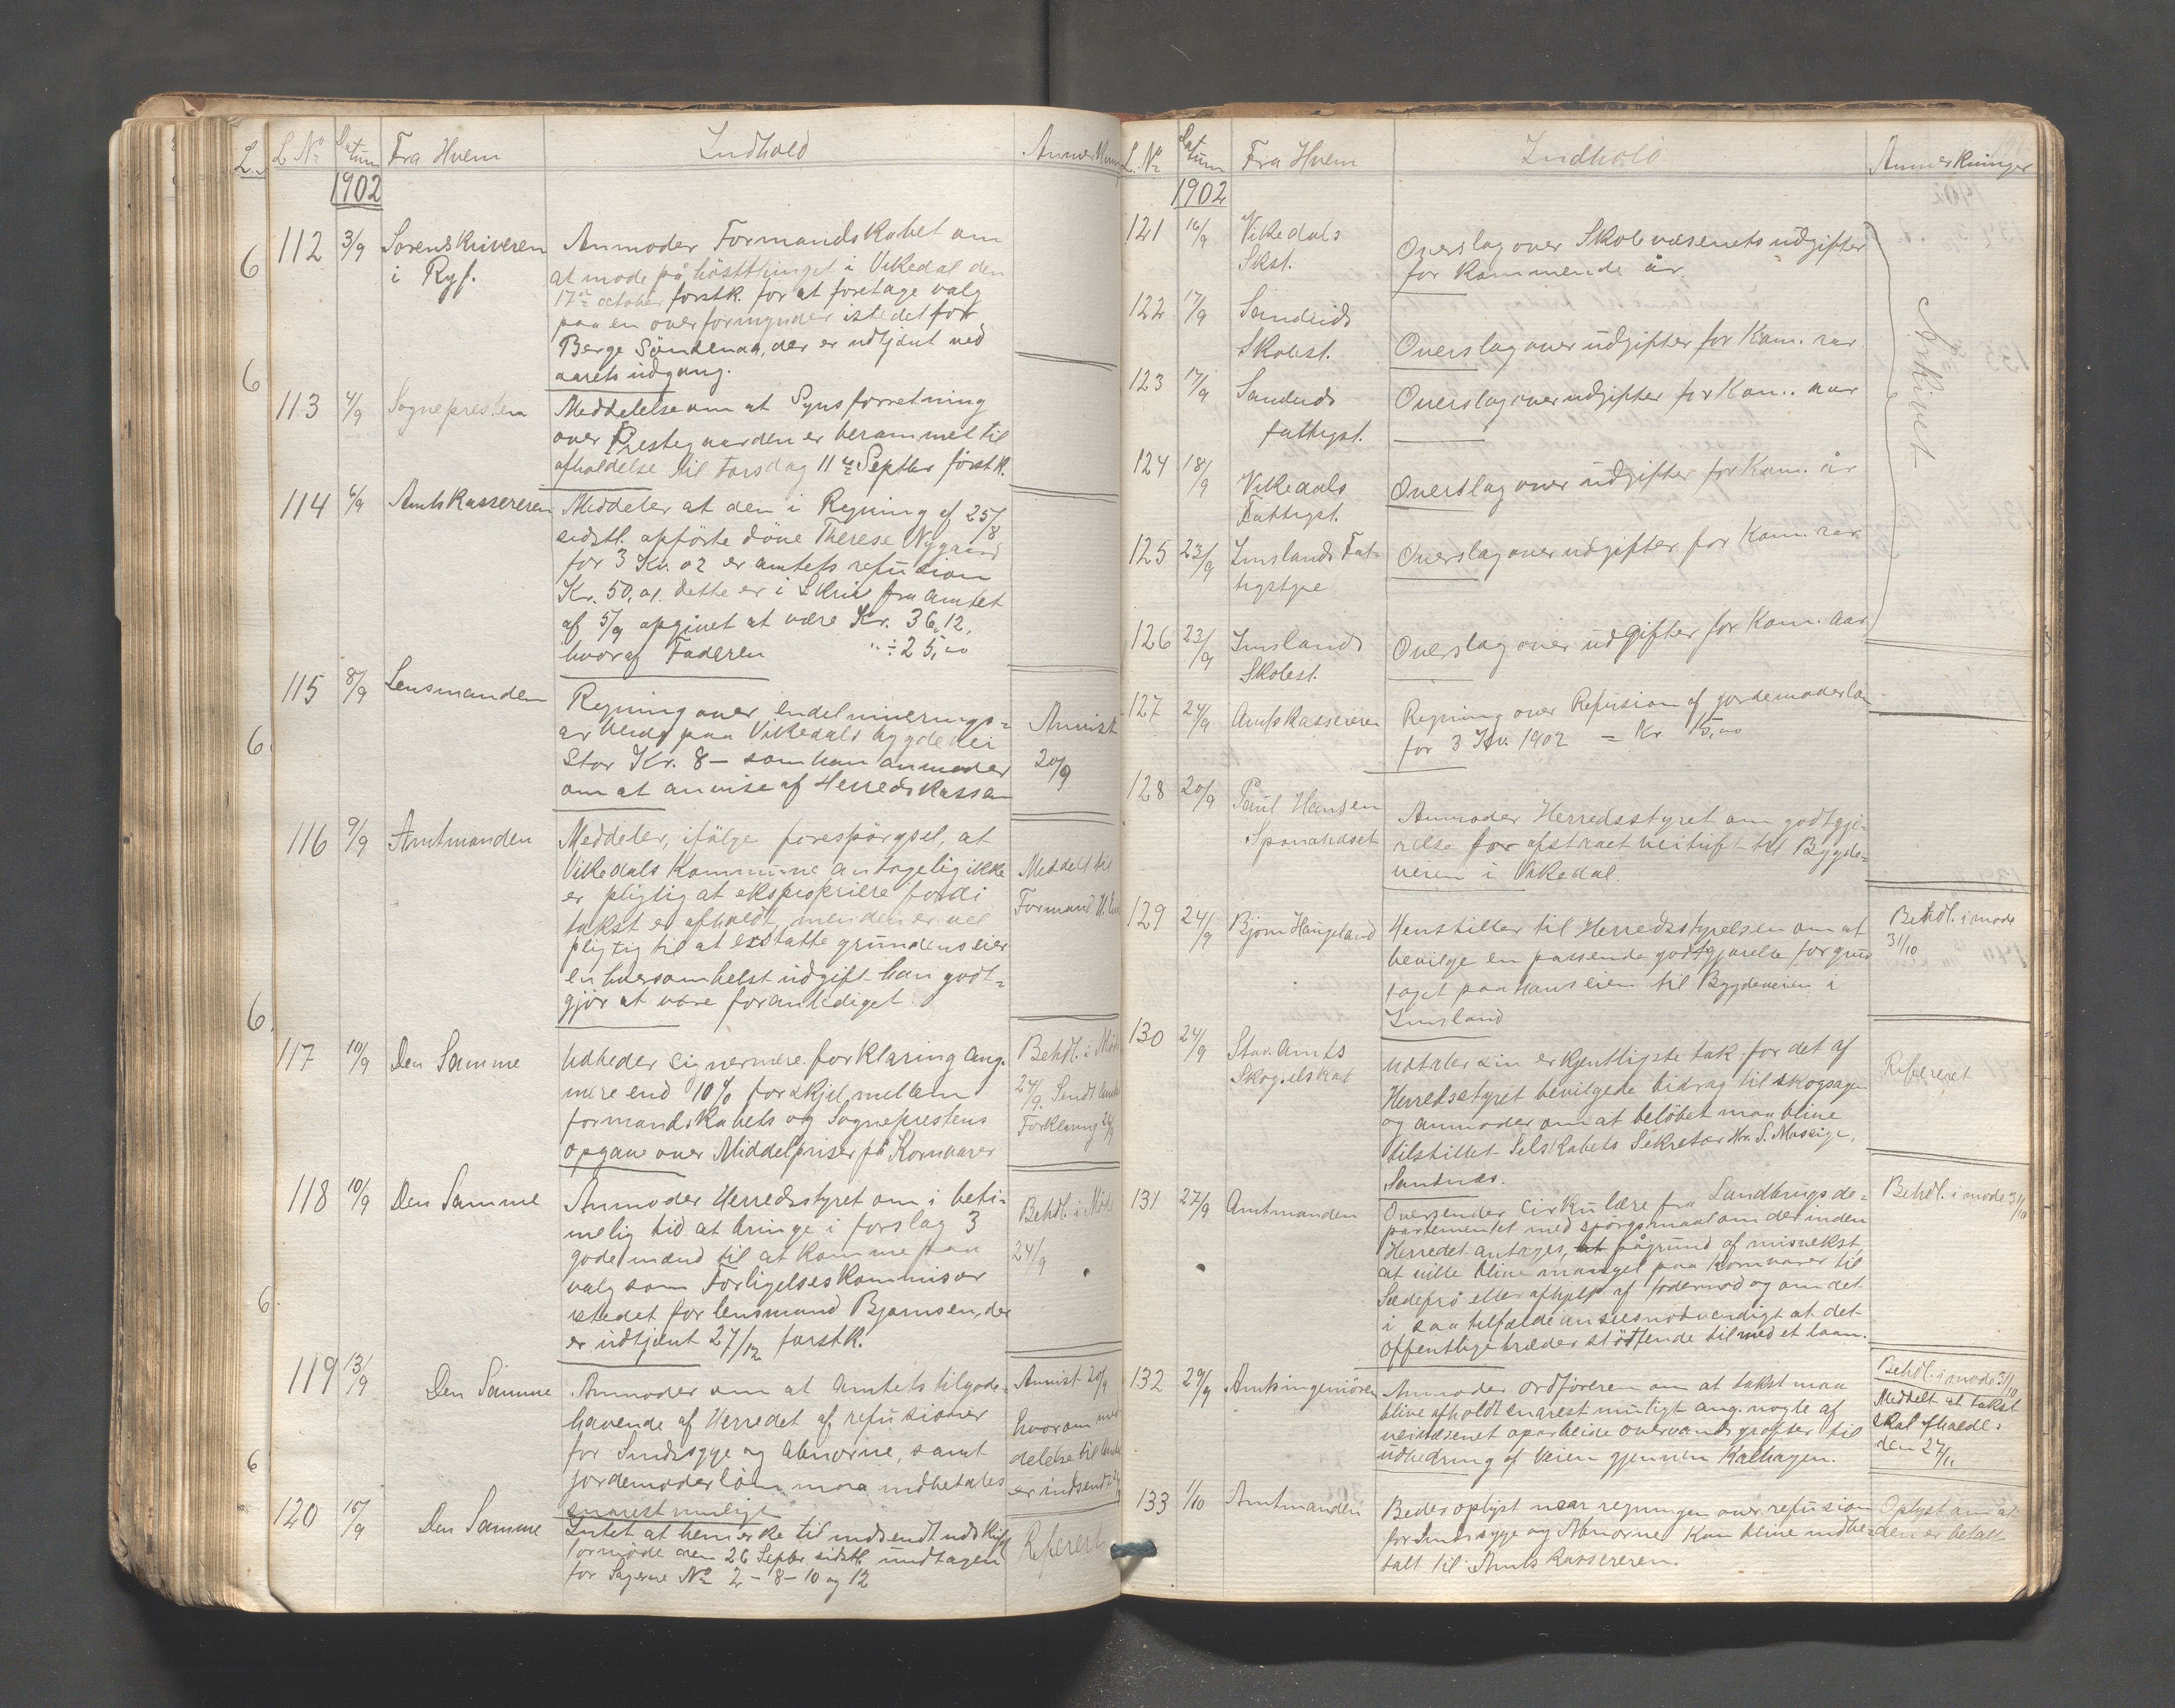 L. No Datum Fra Hvem Indhold Anmerkn
1902
112 3/9 Sorenskriveren i Ryf.
Anmoder Formandskabet om
at møde på høstthinget i Vikedal den
17de october førstk. for at foretage valg
paa en overformynder istedetfor
Berge Søndenaa, der er udtjent ved
aarets udgang.
113 4/9 Sognepresten
Meddelelse om at Synsforretning
over Prestegaarden er berammet til
afholdelse til Torsdag 11te Septbr førstk.
114 6/9 Amtskassereren
Meddeler at den i Regning af 25/8
sidstl. opførte døve Therese Nygaard
for 3 Kv. 02 er amtets refusion
Kr. 50,01. Dette er i Skriv fra Amtet
af 5/9 opgivet at være Kr. 36,12,
hvoraf Faderen " ÷ 25,00
115 8/9 Lensmanden
Regning over
arbeide paa Vikedals bygdevei
Stor Kr. 8 – som han anmoder
om at anvise af Herredskassen
Anvist
20/9
116 9/9 Amtmanden
Meddeler, ifølge forespørgsel, at
Vikedals Kommune antagelig ikke
er pligtig at ekspropriere fordi
takst er afholdt, men den er vel
pligtig til at erstatte grundens eier
en hversomhelst udgift han godt-
gjør at være foranlediget.
Meddelt til
Formand
117 10/9 Den Samme
Udbeder sig nermere forklaring ang.
mere end 10% forskjel mellem
formandskabets og Sogneprestens
opgave over Middelpriser på Kornvarer
Behdl. i Møde
24/9. Sendt Amtet
Forklaring 24/9
118 10/9 Den Samme
Anmoder Herredsstyret om i beti-
melig tid at bringe i forslag 3
gode mænd til at komme paa
valg som Forligelseskommisær
istedet for lensmand Bjørnsen, der
er udtjent 27/12 førstk.
Behdl. i Møde
24/9
119 13/9 Den Samme
Anmoder om at Amtets tilgode-
havende af Herredet af refusioner
for Sindssyge og Abnorme, samt
jordemoderløn maa indbetales
snarest muligt
Anvist 20/9
hvorom med-
delelse til Amtet
er indsendt
120 15/9 Den Samme
Intet at bemerke til indsendt udskrift
formøde den 26 Septbr sidstl. undtagen
for Sagerne No 2 – 8 – 10 og 12
Referert
L. No Datum Fra Hvem Indhold Anmerkninger
1902
121 16/9 Vikedals Skst.
Overslag over Skolevæsenets udgifter
for kommende år.
122 17/9 Sandeids Skolest.
Overslag over udgifter for Kom. aar
123 17/9 Sandeids fattigst.
Overslag over udgifter for Kom. aar
124 18/9 Vikedals Fattigst.
Overslag over udgifter for Kom. år
125 23/9 Imslands Fat-
tigstyre
Overslag over udgifter for Kom. aar
126 23/9 Imslands Skolest.
Overslag over udgifter for Kom. Aar
Arkivet
127 24/9 Amtskassereren
Regning over Refusion af jordemoderløn
for 3 Kv. 1902 = Kr. 15,00
128 20/9 Paul Hansen
Anmoder Herredsstyret om godtgjø-
relse for afstaaet veituft til Bygde-
veien i Vikedal.
129 24/9 Bjørn Haugeland
Henstiller til Herredsstyrelsen om at
bevilge en passende godtgjørelse for grund
taget paa hans eien til Bygdeveien i
Imsland
Behdl. i møde
31/10
130 24/9 Stav. Amts
Skogselskab
Udtaler sin erkjentligste tak for det af
Herredsstyret bevilgede bidrag til skogsagen
og anmoder om at beløbet maa blive
tilstillet Selskabets Sekretær Hr. S. Møseige,
Sandnæs.
Refereret
131 27/9 Amtmanden
Oversender Cirkulære fra Landbrugsde-
partementet med spørgsmaal om der inden
Herredet antages, at pågrund af misvekst,
at ville blive mangel paa Kornvarer til
Sædefrø eller afhjelp af fodernød og om det
i saa tilfælde ansees nødvendigt at det
offentlige træder støttende til med et laan.
Behdl. i møde 31/10
132 29/9 Amtsingeniøren
Anmoder ordføreren om at takst maa
blive afholdt snarest muligt ang. nogle af
veivæsenet oparbeide overvandsgrøfter til
udbedring af Veien gjennem Kalhagen.
Behdl. i møde 31/10
Meddelt at takst
skal afholdes
den 27/11
133 1/10 Amtmanden
Beder oplyst naar regningen over refusion
for Sindssyge og Abnorme kan blive indbe-
talt til Amtskassereren.
Oplyst om at
den er betalt